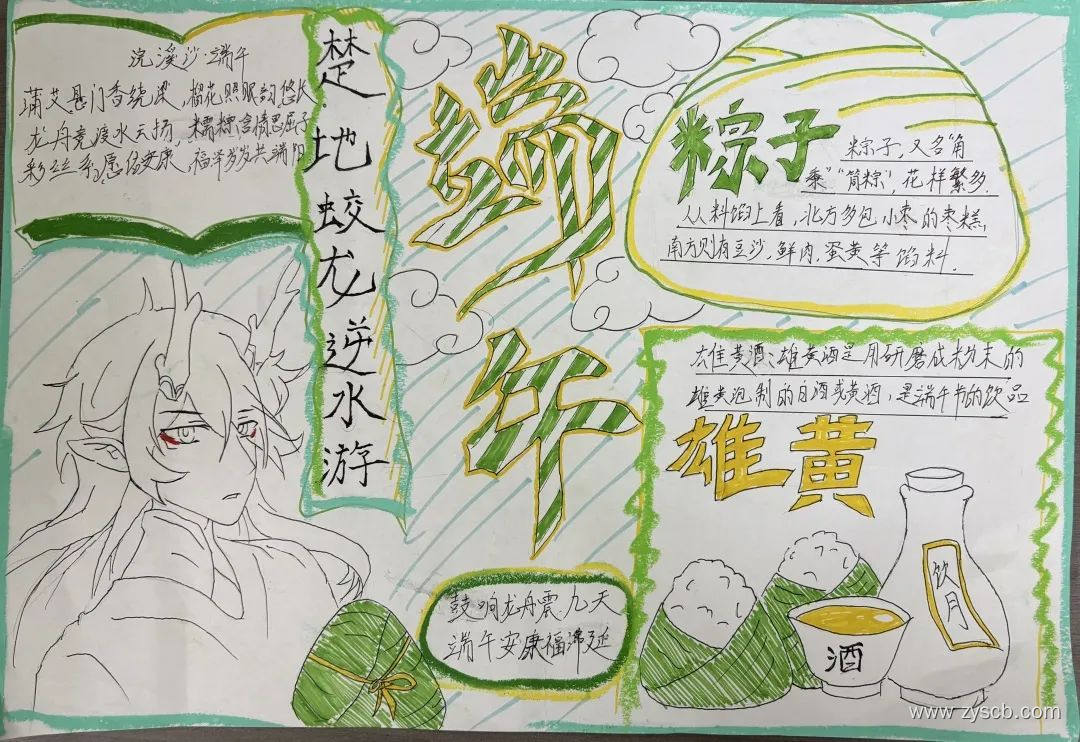 浣溪沙·端午
蒲艾悬门香绕梁，榴花照眼韵悠长
龙舟竞渡水云扬，糯粽含情思屈子
彩丝系愿保安康，福华岁岁共端阳
楚地蛟龙逆水游
端午
粽子
粽子，又名"角
黍""筒粽"，花样繁多.
从料馅上看，北方多包小枣的枣糕，
南方则有豆沙.鲜肉.蛋黄等馅料.
雄黄酒：雄黄酒是用研磨成粉末的
雄黄泡制的白酒或黄酒，是端午节的饮品
雄黄
饮月
酒
鼓响龙舟震九天
端午安康福沸延
www.zyscb.com